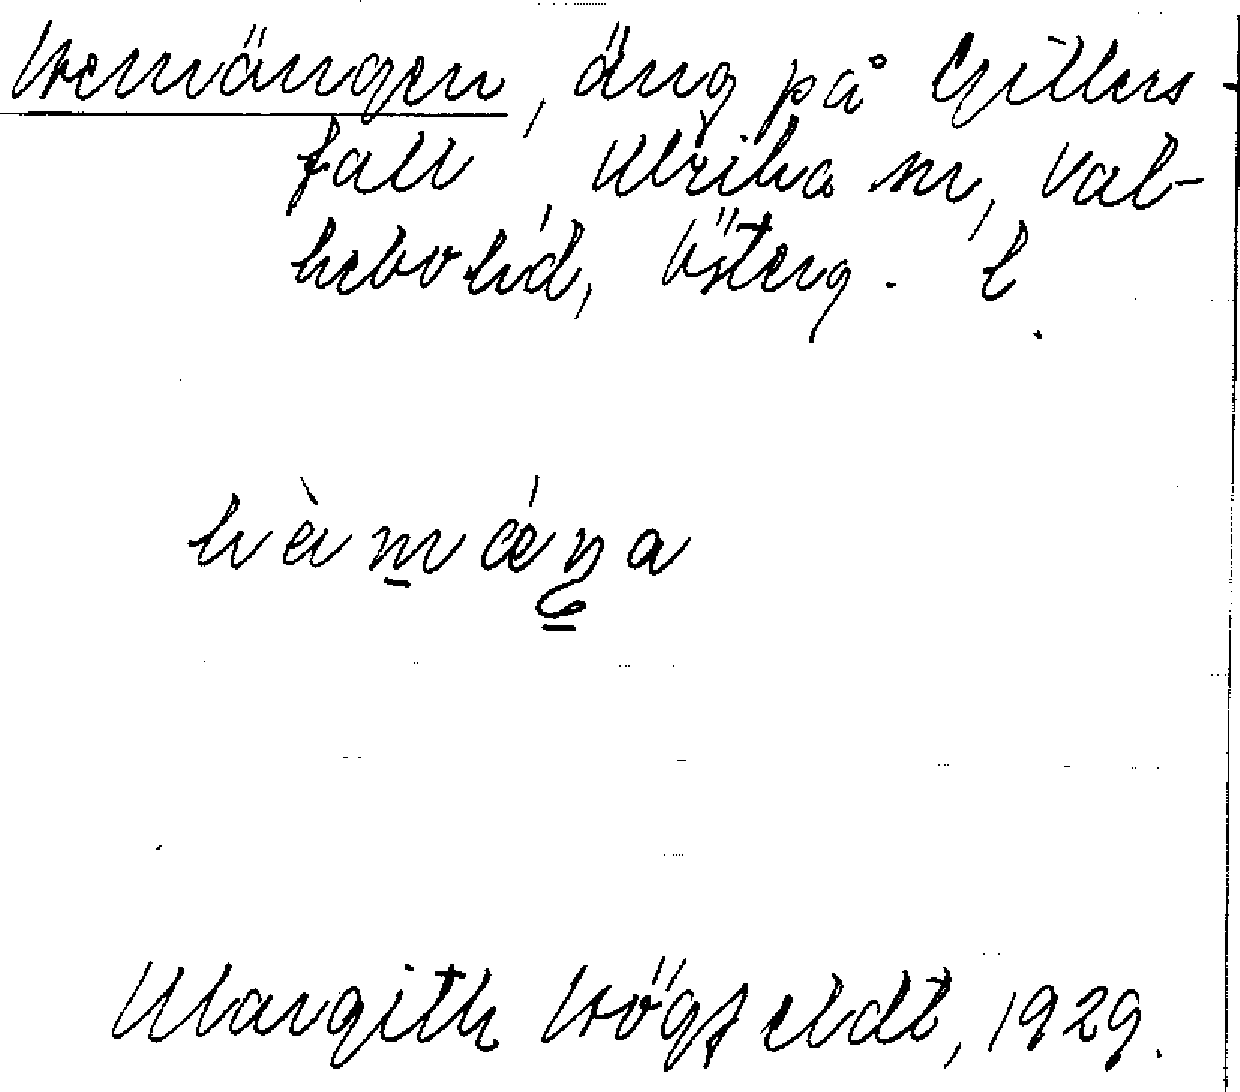 Hemängen, äng på Gillers-
fall, Ulrika sn, Val-
kebo hd, Österg. l.
Margith Högfeldt, 1929.